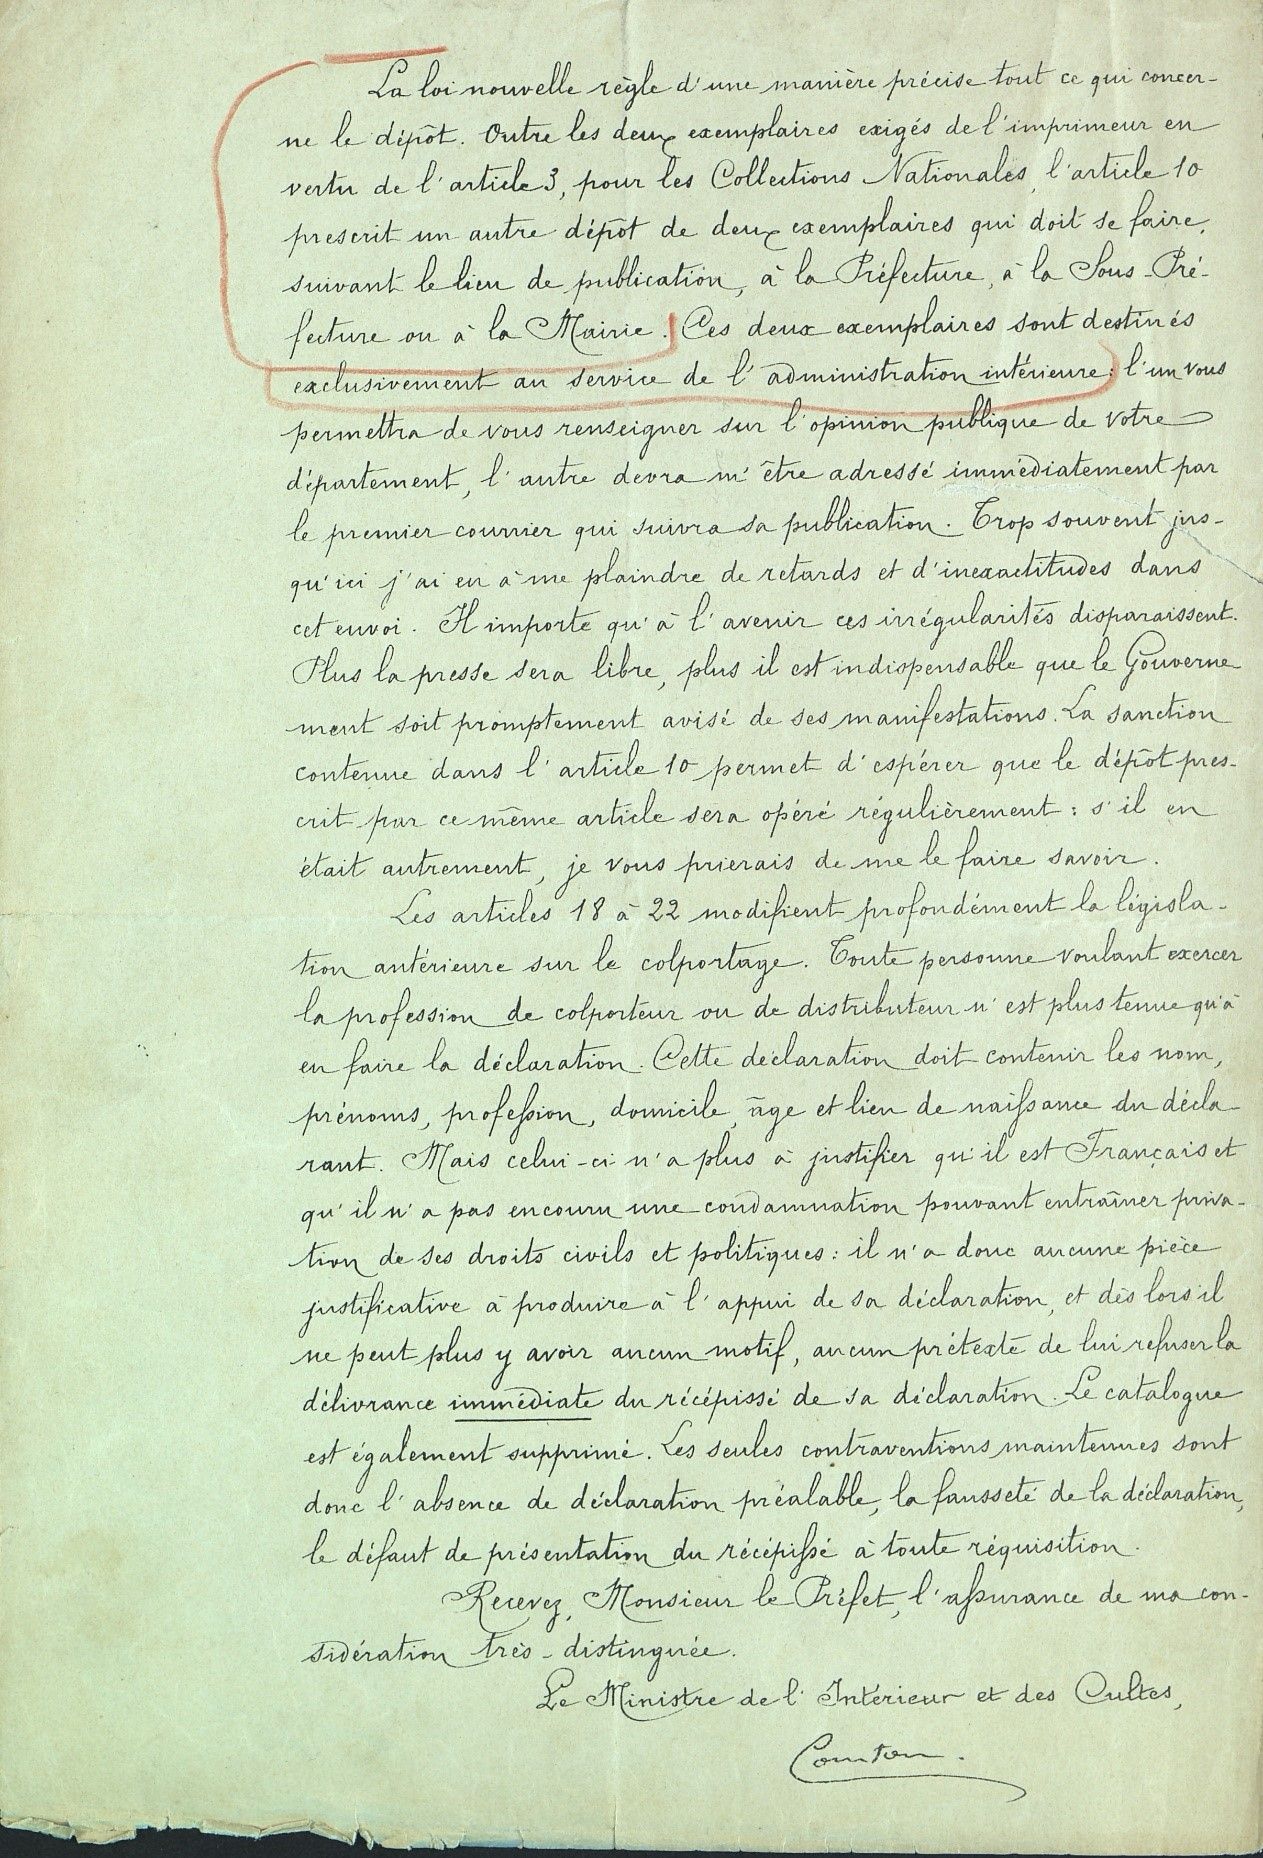 La loi nouvelle règle d'une manière précise tout ce qui concer-
ne le dépôt. Outre les deux exemplaires exigés de l'imprimeur en
vertu de l'article 3, pour les Collections Nationales, l'article 10
prescrit un autre dépôt de deux exemplaires qui doit se faire,
suivant le lieu de publication, à la Préfecture, à la Sous-Pré-
fecture ou à la Mairie. Ces deux exemplaires sont destinés
exclusivement au service de l'administration intérieure: l'un vous
permettra de vous renseigner sur l'opinion publique de votre
département, l'autre devra m'être adressé immédiatement par
le premier courrier qui suivra sa publication. Trop souvent jus-
qu'ici j'ai eu à me plaindre de retards et d'inexactitudes dans
cet envoi. Il importe qu'à l'avenir ces irrégularités disparaissent.
Plus la presse sera libre, plus il est indispensable que le Gouverne
ment soit promptement avisé de ses manifestations. La sanction
contenue dans l'article 10 permet d'espérer que le dépôt pres-
crit par ce même article sera opéré régulièrement: s'il en
était autrement, je vous prierais de me le faire savoir.
Les articles 18 à 22 modifient profondément la législa-
tion antérieure sur le colportage. Toute personne voulant exercer
la profession de colporteur ou de distributeur n'est plus tenue qu'à
en faire la déclaration. Cette déclaration doit contenir les nom,
prénoms, profession, domicile, âge et lieu de naissance du décla-
rant. Mais celui-ci n'a plus à justifier qu'il est Français et
qu'il n'a pas encouru une condamnation pouvant entraîner priva-
tion de ses droits civils et politiques: il n'a donc aucune pièce
justificative à produire à l'appui de sa déclaration, et dès lors il
ne peut plus y avoir aucun motif, aucun prétexte de lui refuser la
délivrance immédiate du récépissé de sa déclaration. Le catalogue
est également supprimé. Les seules contraventions maintenues sont
donc l'absence de déclaration préalable, la fausseté de la déclaration,
le défaut de présentation du récépissé à toute réquisition.
Recevez, Monsieur le Préfet, l'assurance de ma con-
sidération très-distinguée.
Le Ministre de l'Intérieur et des Cultes,